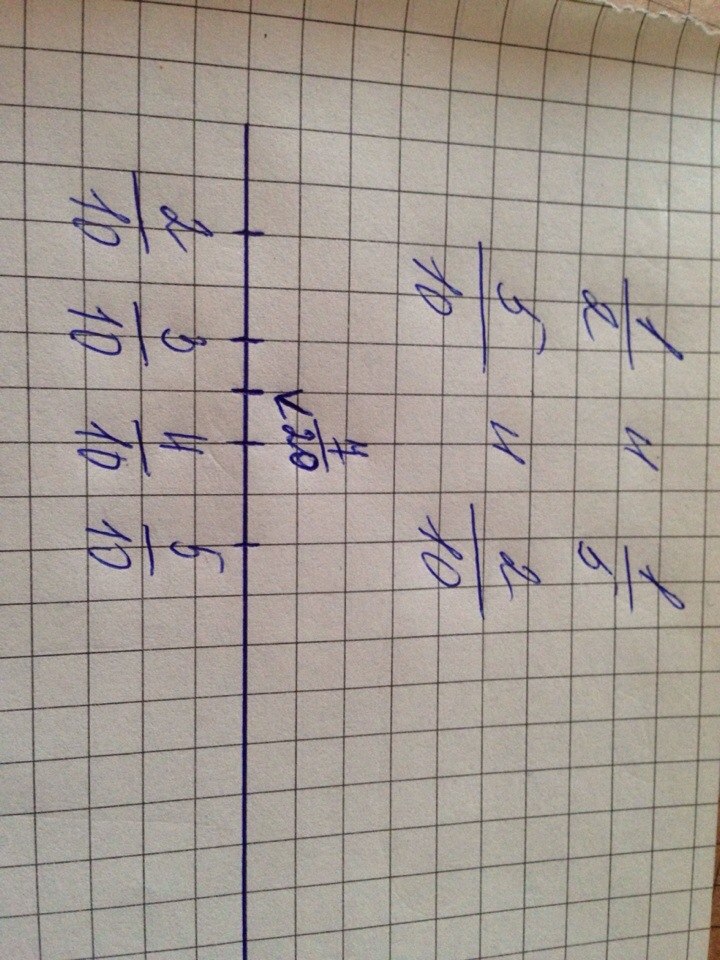 1/2 и 1/5
5/10 и 2/10
7/20
2/10 3/10 4/10 5/10